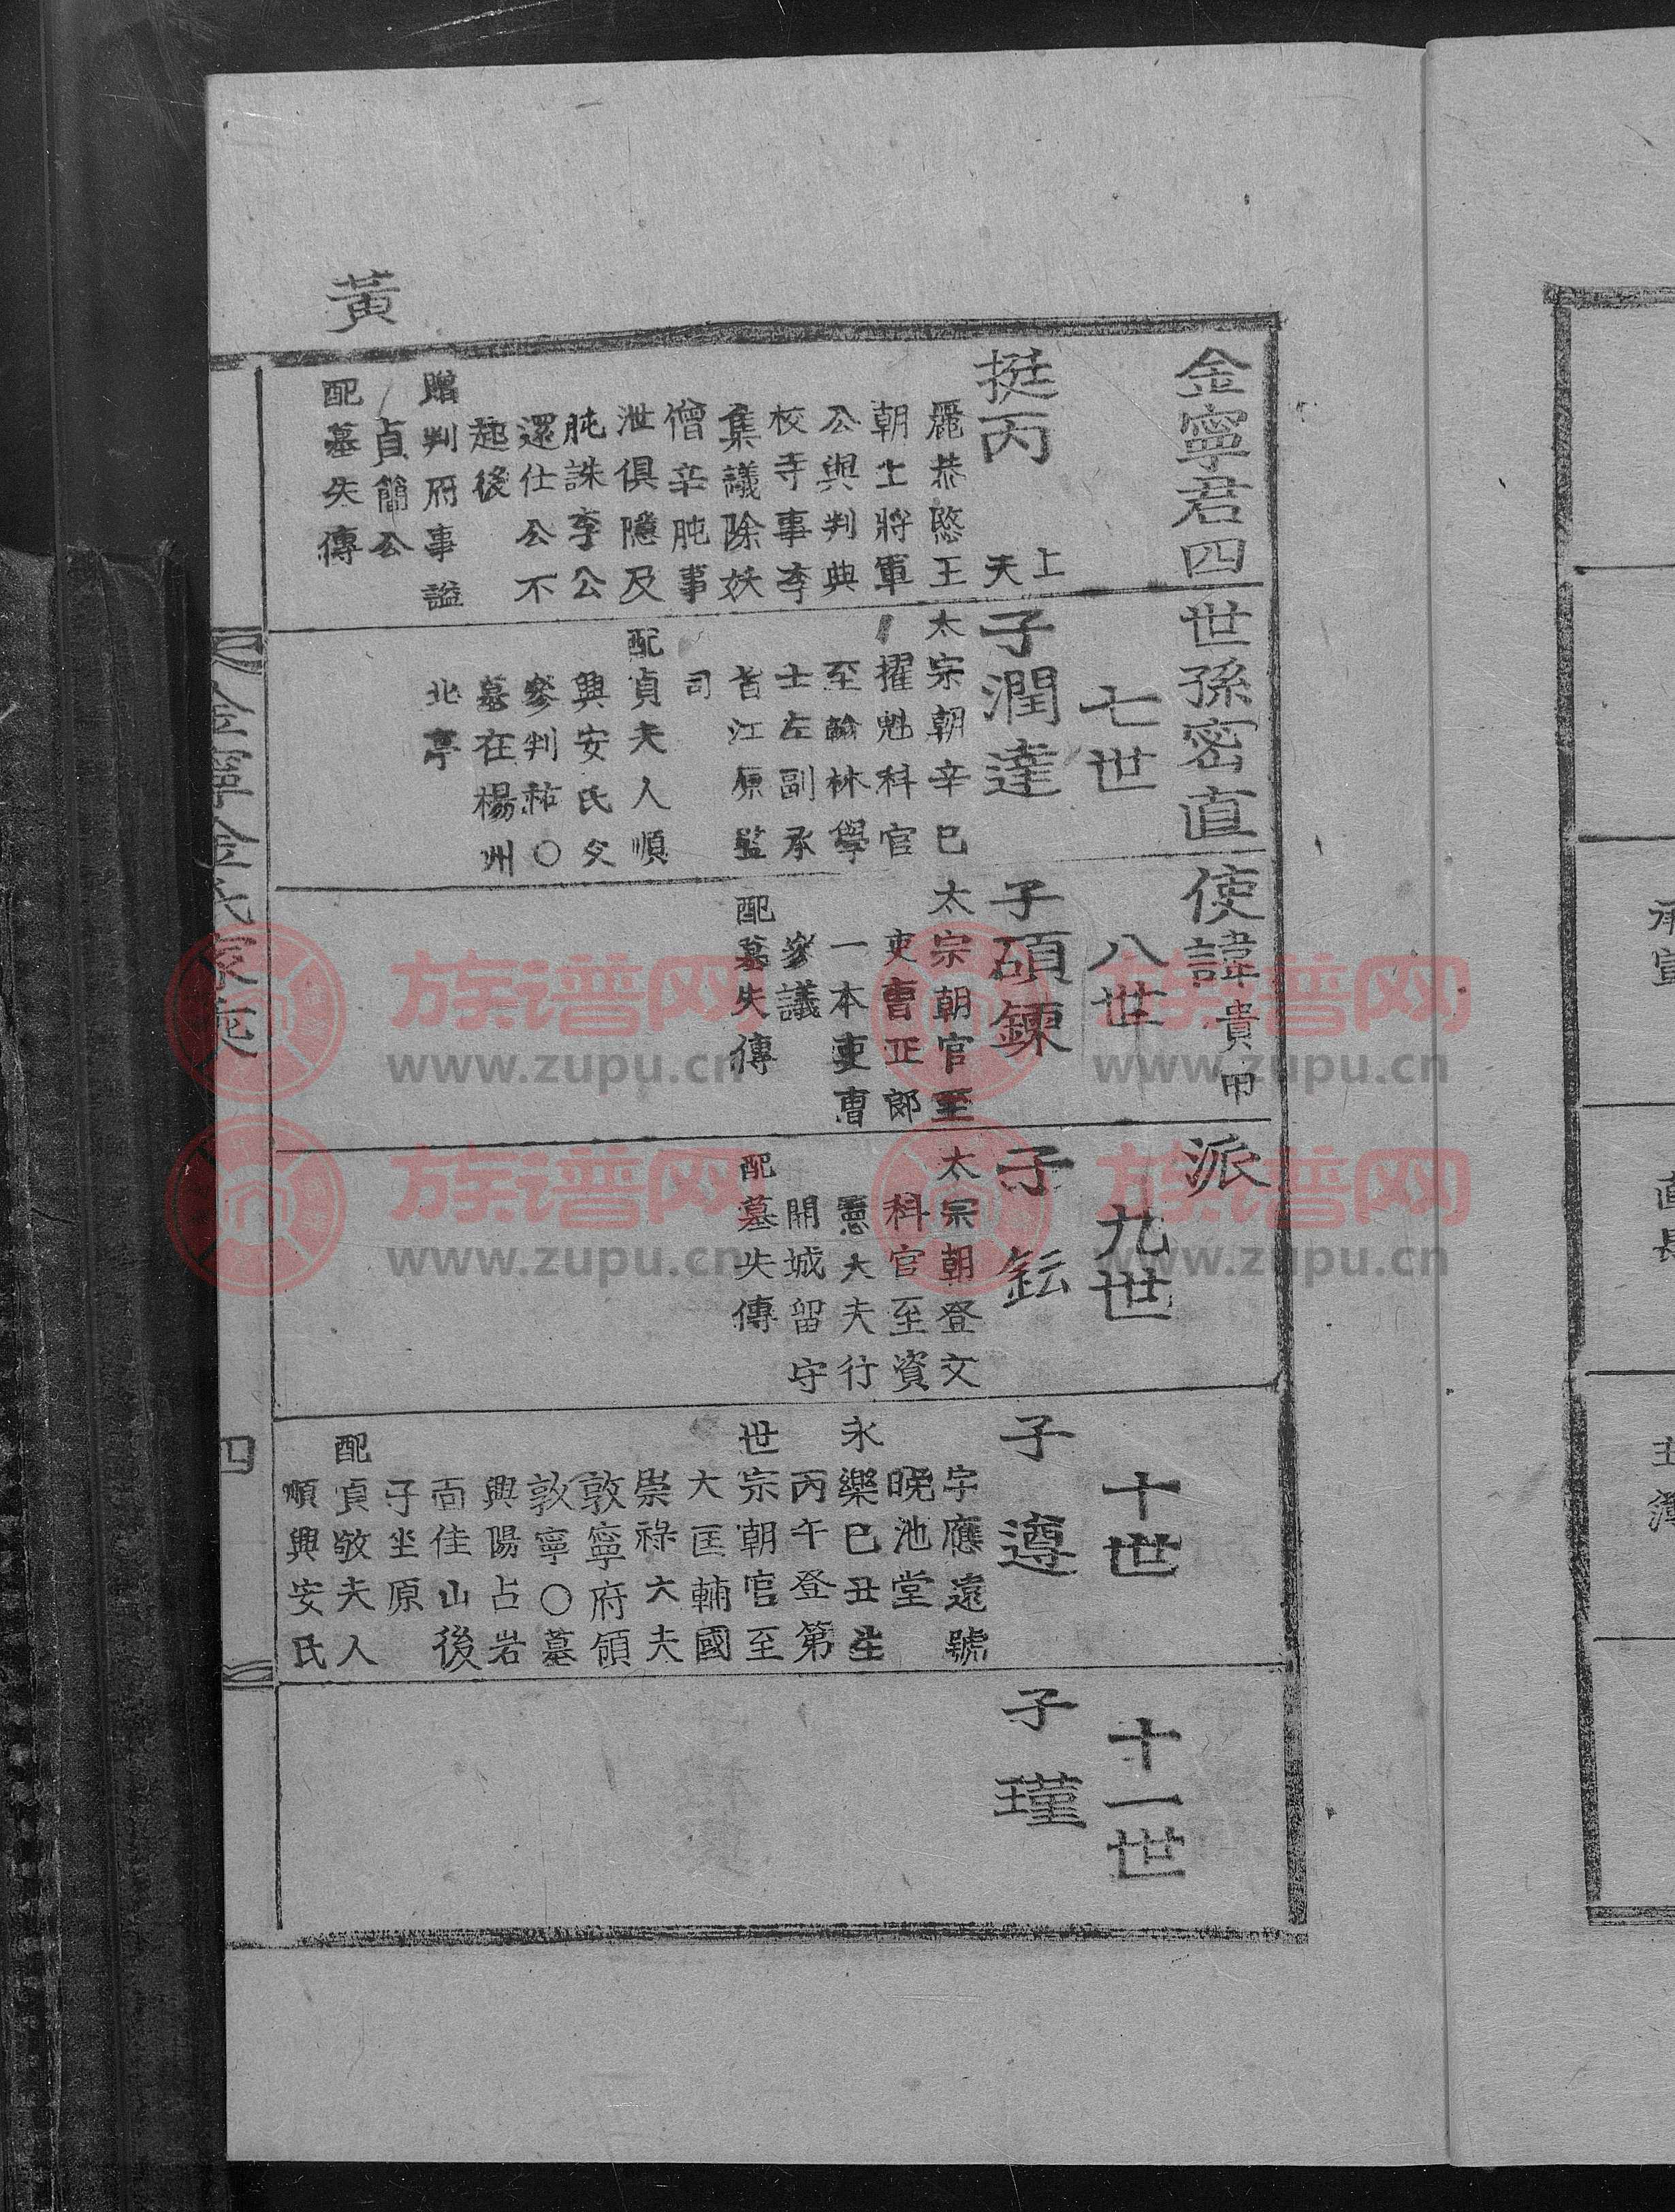 黃
金寧君四世孫密直使諱貴甲派
挺丙
上
天
麗恭愍王
朝上將軍
公與判典
校寺事李
集議除妖
僧辛旽事
泄俱隱及
旽誅李公
還仕公不
起後
贈判府事謚
貞簡公
配墓失傳
七世
子潤達
太宗朝辛巳
擢魁科官
至翰林學
士左副承
旨江原監
司
配貞夫人順
興安氏父
參判祐○
墓在楊洲
北亭
八世
子碩鍊
太宗朝官至
吏曹正郎
一本吏曹
參議
配墓失傳
九世
子鈜
太宗朝登文
科官至資
憲大夫行
開城留守
配墓失傳
十世
子遵
字應遠號
晚池堂
永樂己丑生
丙午登第
世宗朝官至
大匡輔國
崇祿大夫
敦寧府領
敦寧○墓
興陽占岩
面佳山後
子坐原
配貞敬夫人
順興安氏
十一世
子瑾
金寧金氏家
四
族谱网
www.zupu.cn
族谱网
www.zupu.cn
族谱网
www.zupu.cn
族谱网
www.zupu.cn